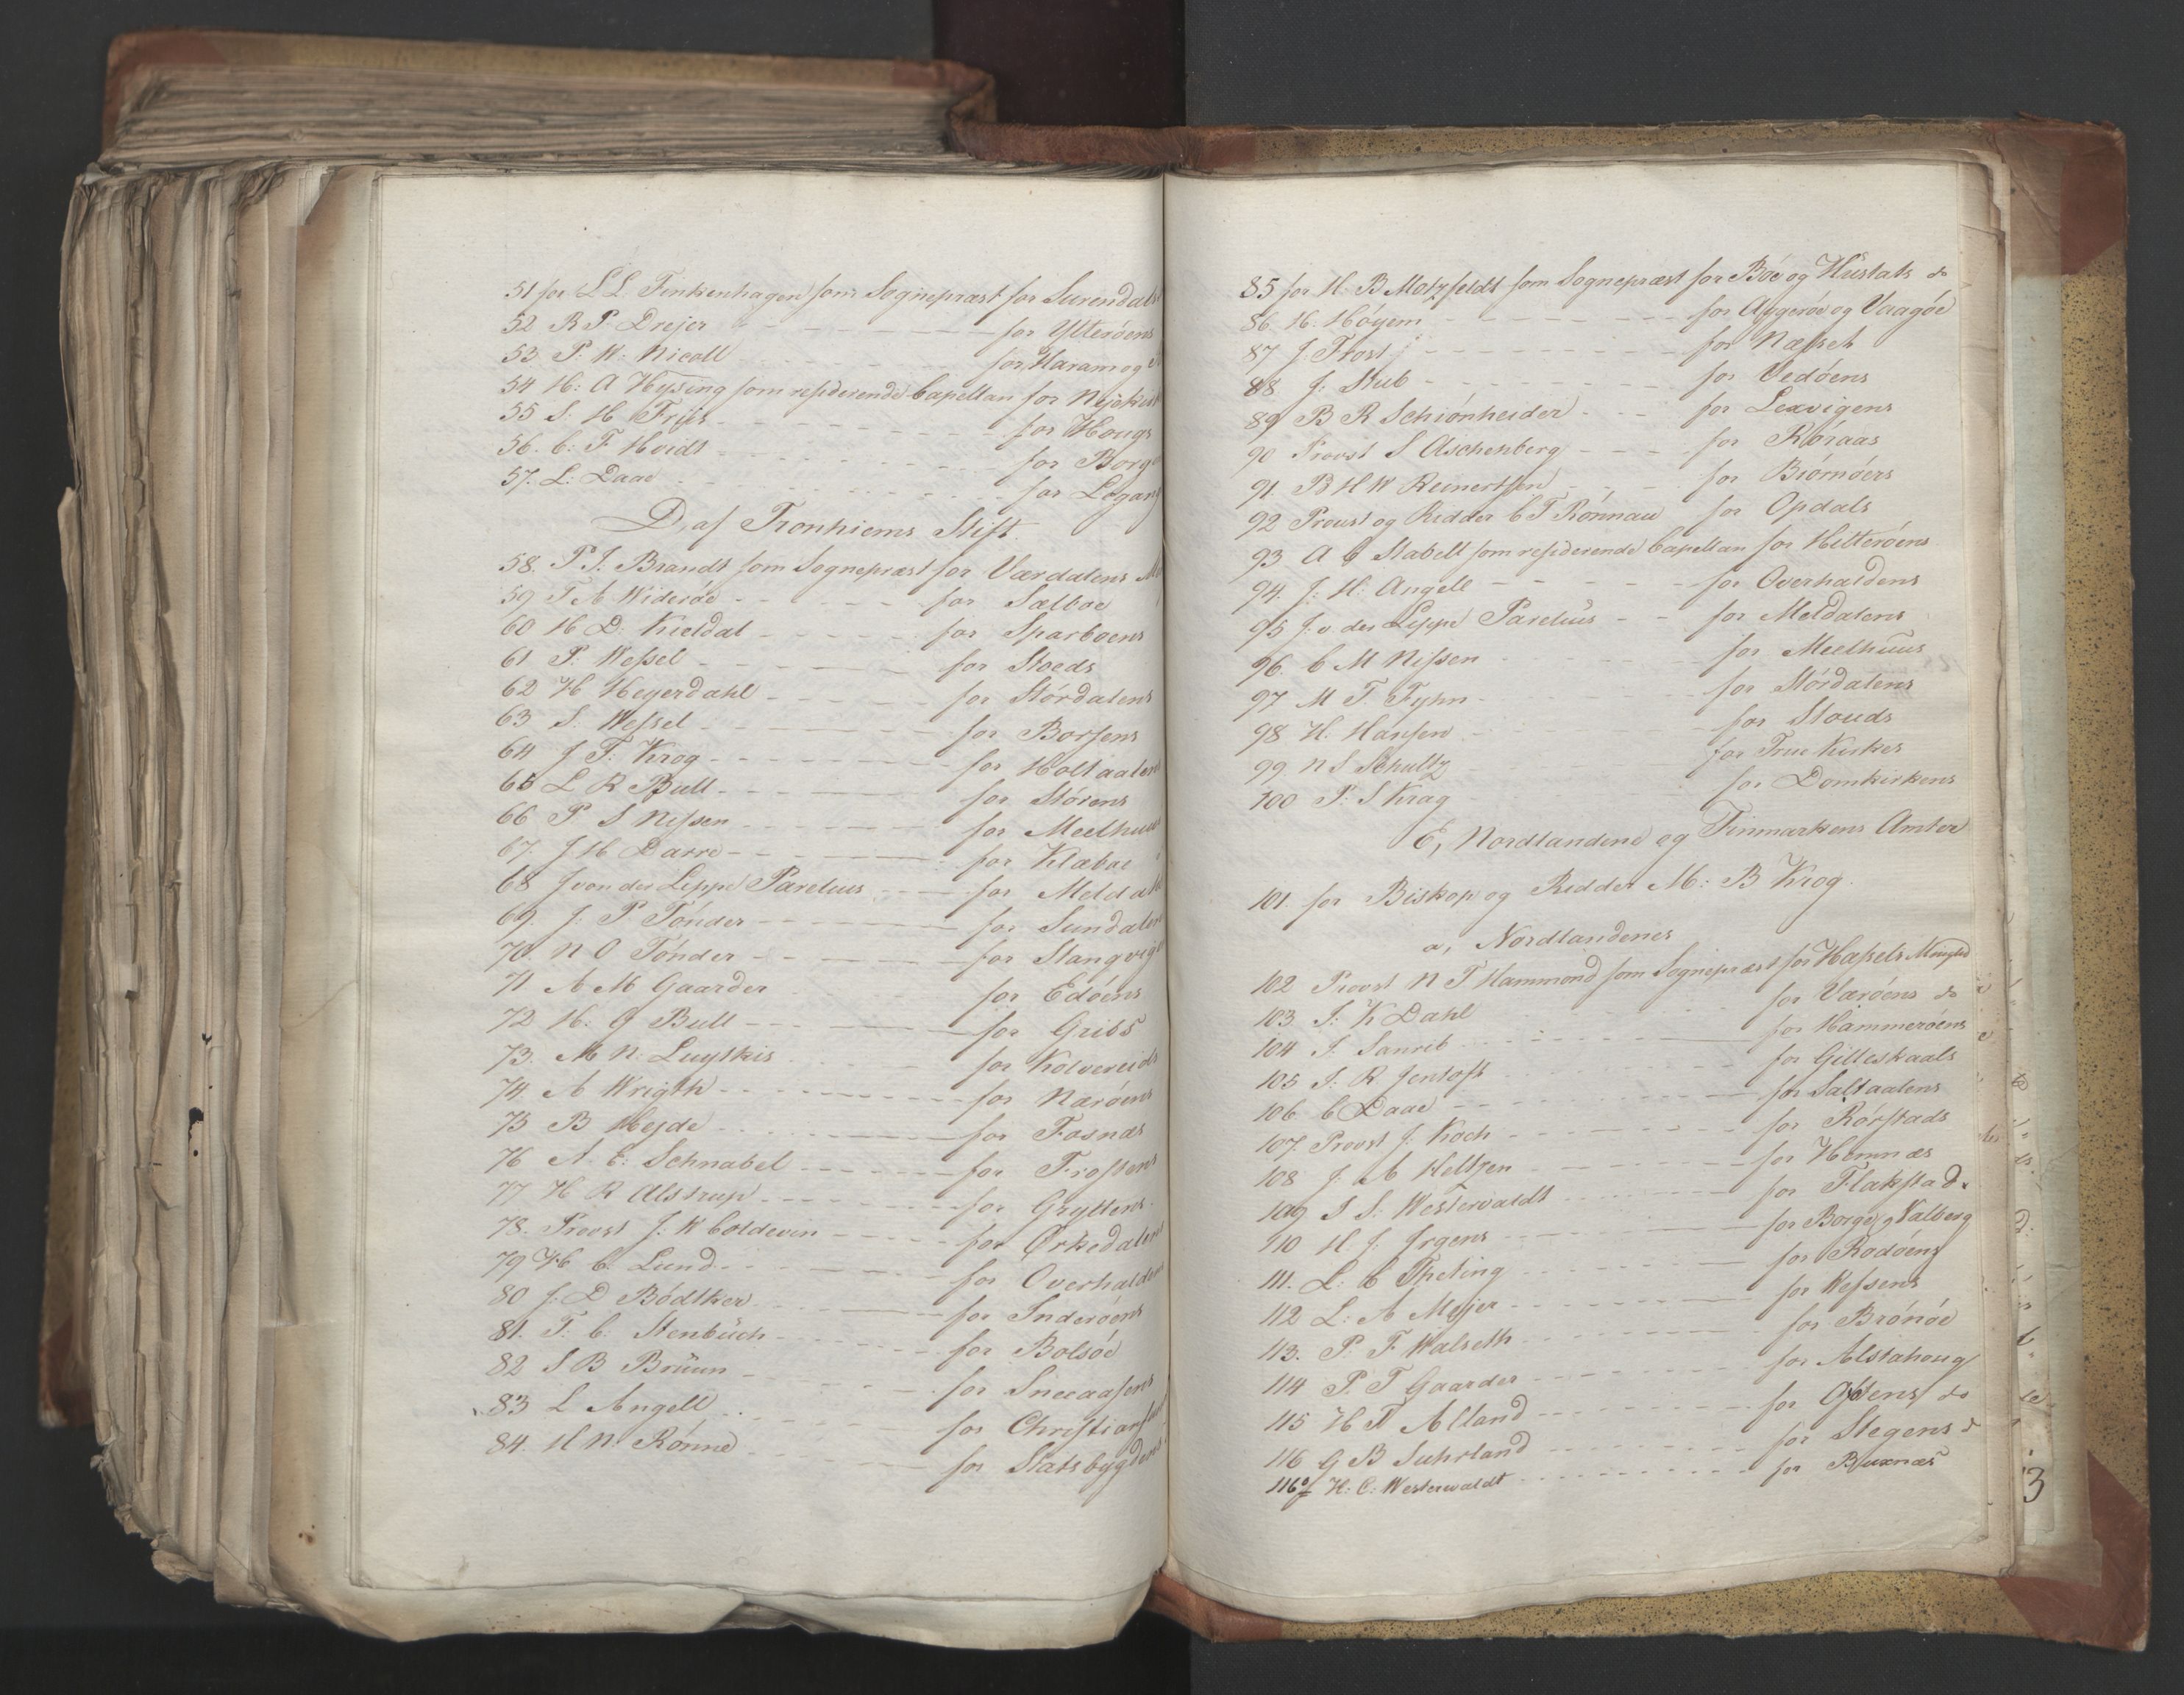 51 for L L. Finkenhagen som Sognepræst for Surendals
52 R P. Drejer - - - for Ytterøens
53 P. W. Nicoll - - - for Haram og
54 H: A Hysing som residerende Capellan for Nykirk
55 S. H. Friis - - - for Hougs
56. C. F. Hvidt - - - for Borg
57. L. Daae - - - for Legang
D, af Tronhiems Stift.
58. P. J. Brandt som Sognepræst for Værdalens
59 T A Widerøe - - - for Sælboe
60 H D. Kieldal - - - for Sparboens
61 P. Wessel - - - for Stoeds
62 H Heyerdahl - - - for Størdalens
63 S. Wessel - - - for Borsens
64 J F. Krog - - - for Holtaalen
65 L R Bull - - - for Størens
66 P S Nissen - - - for Meelhuus
67. J H Darre - - - for Klæboe
68 J von der Lippe Parelius - - - for Meldal
69. J. P Tønder - - - for Sundalen
70. N O Tønder - - - for Stangvig
71 A M Gaarder - - - for Edøens
72 H: J Bull - - - for Griis
73. M N. Luytkis - - - for Kolvereids
74. A Wrigth - - - for Nærøens
75 B Hejde - - - for Fosnæs
76 A. E: Schnabel - - - for Frostens
77 H R Alstrup - - - for Gryttens
78. Provst J. W Coldevin - - - for Ørkedalens
79 H C. Lund - - - for Overhalden
80 J. D Bødtker - - - for Inderøens
81. T. C. Stenbüch - - - for Bolsöe
82 S B Brüun - - - for Sneaasens
83 L Angell - - - for Christians
84. H N. Rønne - - - for Statsbygdens
85 for H. B Motzfeldt som Sognepræst for Böe og Hüstats do
86. H. Høyem - - - for Aggerøe og Vaagöe
87 J. Frost - - - for Næsset
88 J: Stub - - - for Vedøens
89 B R Schiønheider - - - for Lexvigens
90 Provst S Aschenberg - - - for Røraas
91. B H W Reinertsen - - - for Biørnöers
92 Provst og Ridder C F Rønnau for Opdals
93. A C Stabell som residerende Capellan for Hitterøens
94. J: H: Angell - - - for Overhaldens
95 J. v. der Lippe Parelius - - - for Meldalens
96. C M Nissen - - - for Meelhuus
97 M F. Fyhn - - - for Stördalens
98 H. Hansen - - - for Stouds
99 N S Schultz - - - for Frue Kirkes
100 P: S Krag - - - for Domkirkens
E, Nordlandene og Finmarkens Amter
101. for Biskop og Ridder M: B Krog.
a, Nordlandenes
102 Provst N T Hammond som Sognepræst for Hassels Menighed
103 J: K Dahl - - - for Værøens do
104 J. Sanreb - - - for Hammerøens
105 J: R Jentoft - - - for Gilleskaals
106. C Daae - - - for Saltdalens
107. Provst J: Koch - - - for Rørstads
108 J. A Heltzen - - - for Hemnæs
109 S S. Westervaldt - - - for Flakstad.
110 H. J. Irgens - - - for Borge og Valberg
111. L. C Theting - - - for Rodøens
112 L. A Mejer - - - for Vefsens
113. P. F. Walseth - - - for Brönöe
114 P. T Gaarder - - - for Alstahoug
115 H T Alland - - - for Ofotens do
116 G B Suhrland - - - for Stegens
116 a/ H. C. Westerwaldt - - - for Buxnæs
3